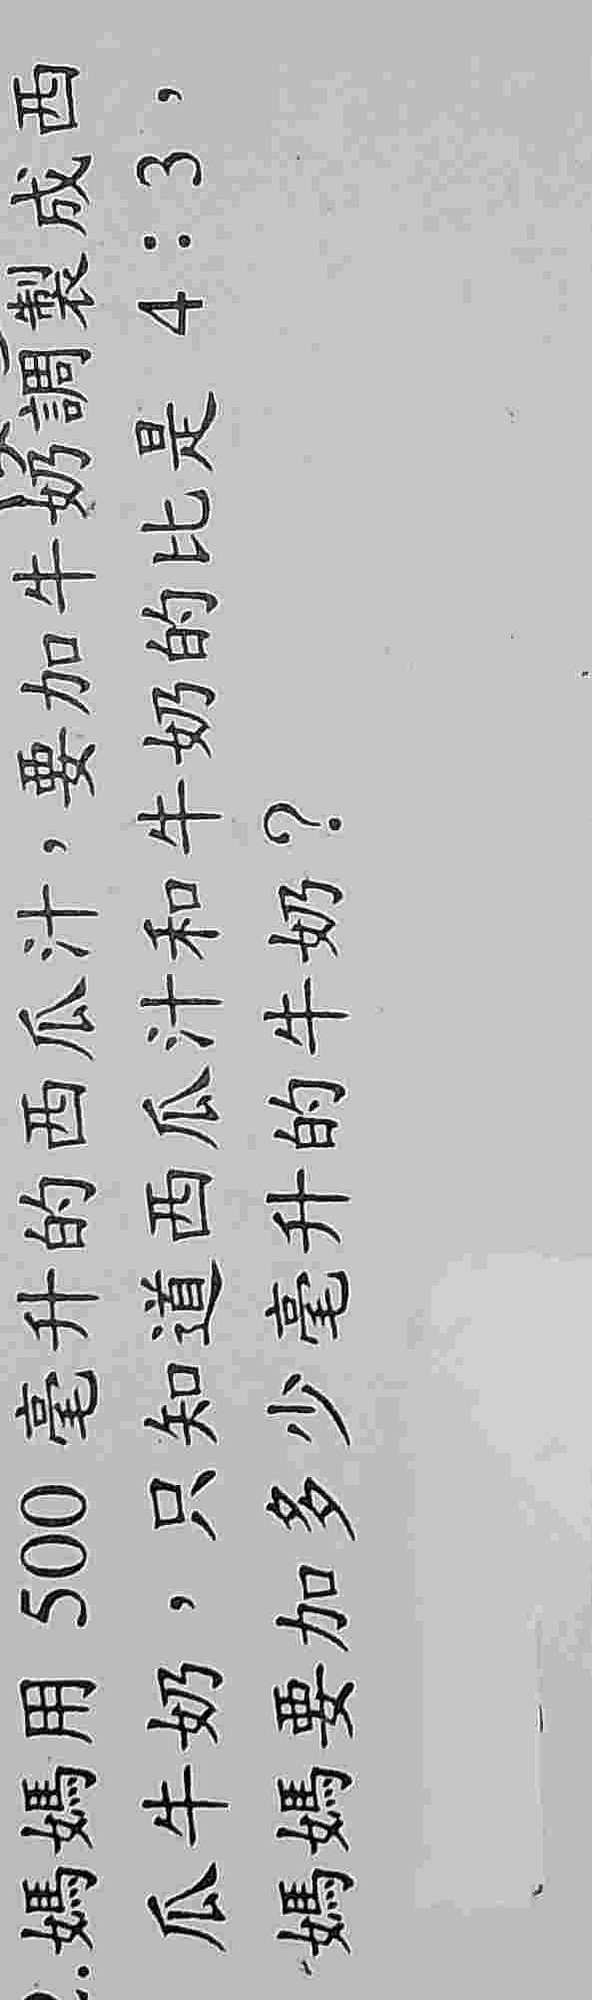 2.媽媽用 500 毫升的西瓜汁，要加牛奶調製成西
瓜牛奶，只知道西瓜汁和牛奶的比是 4：3，
媽媽要加多少毫升的牛奶？